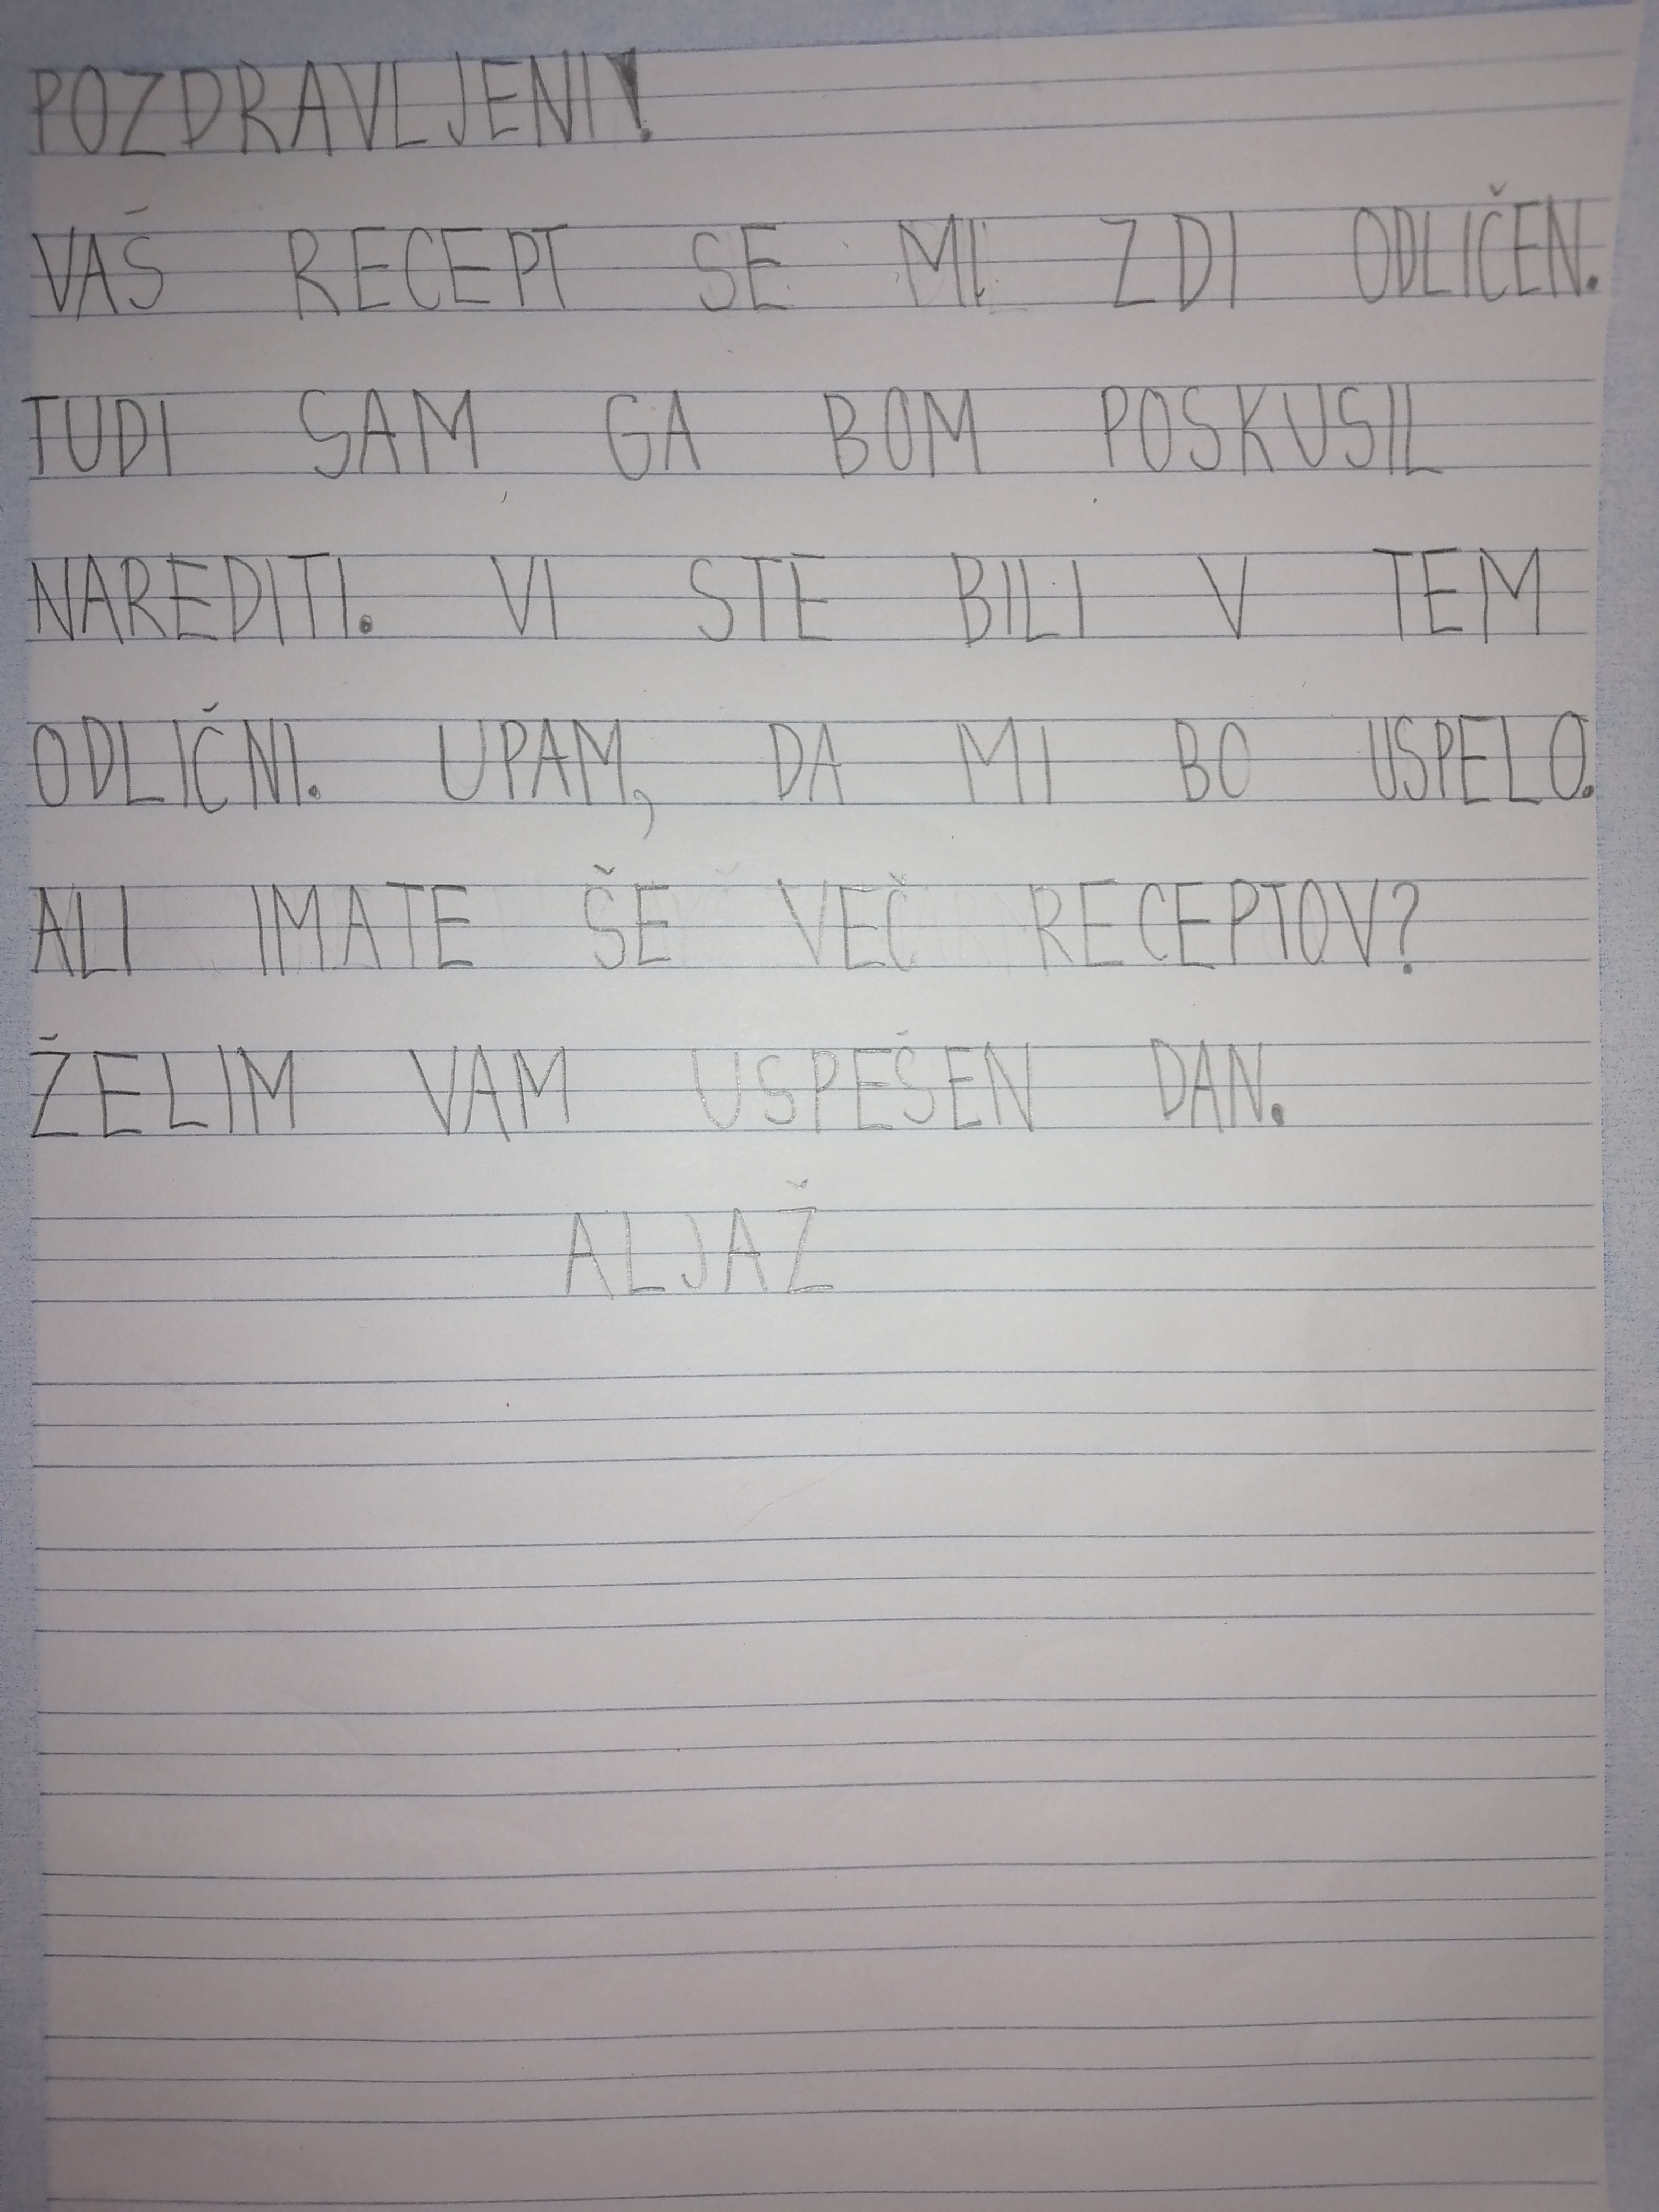 POZDRAVLJENI!
VAŠ RECEPT SE MI ZDI ODLIČEN.
TUDI SAM GA BOM POSKUSIL
NAREDITI. VI STE BILI V TEM
ODLIČNI. UPAM, DA MI BO USPELO.
ALI IMATE ŠE VEČ RECEPTOV?
ŽELIM VAM USPEŠEN DAN.
ALJAŽ